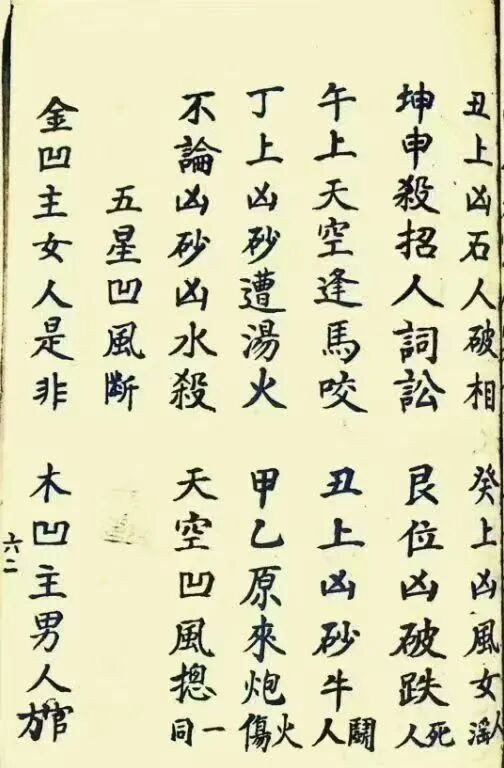 丑上凶石人破相 癸上凶風女人滛
坤申殺招人詞訟 艮位凶破跌死人
午上天空逢馬咬 丑上凶砂牛鬭人
丁上凶砂遭湯火 甲乙原來炮火傷
不論凶砂凶水殺 天空凹風摠一同
五星凹風斷
金凹主女人是非 木凹主男人官方
六二